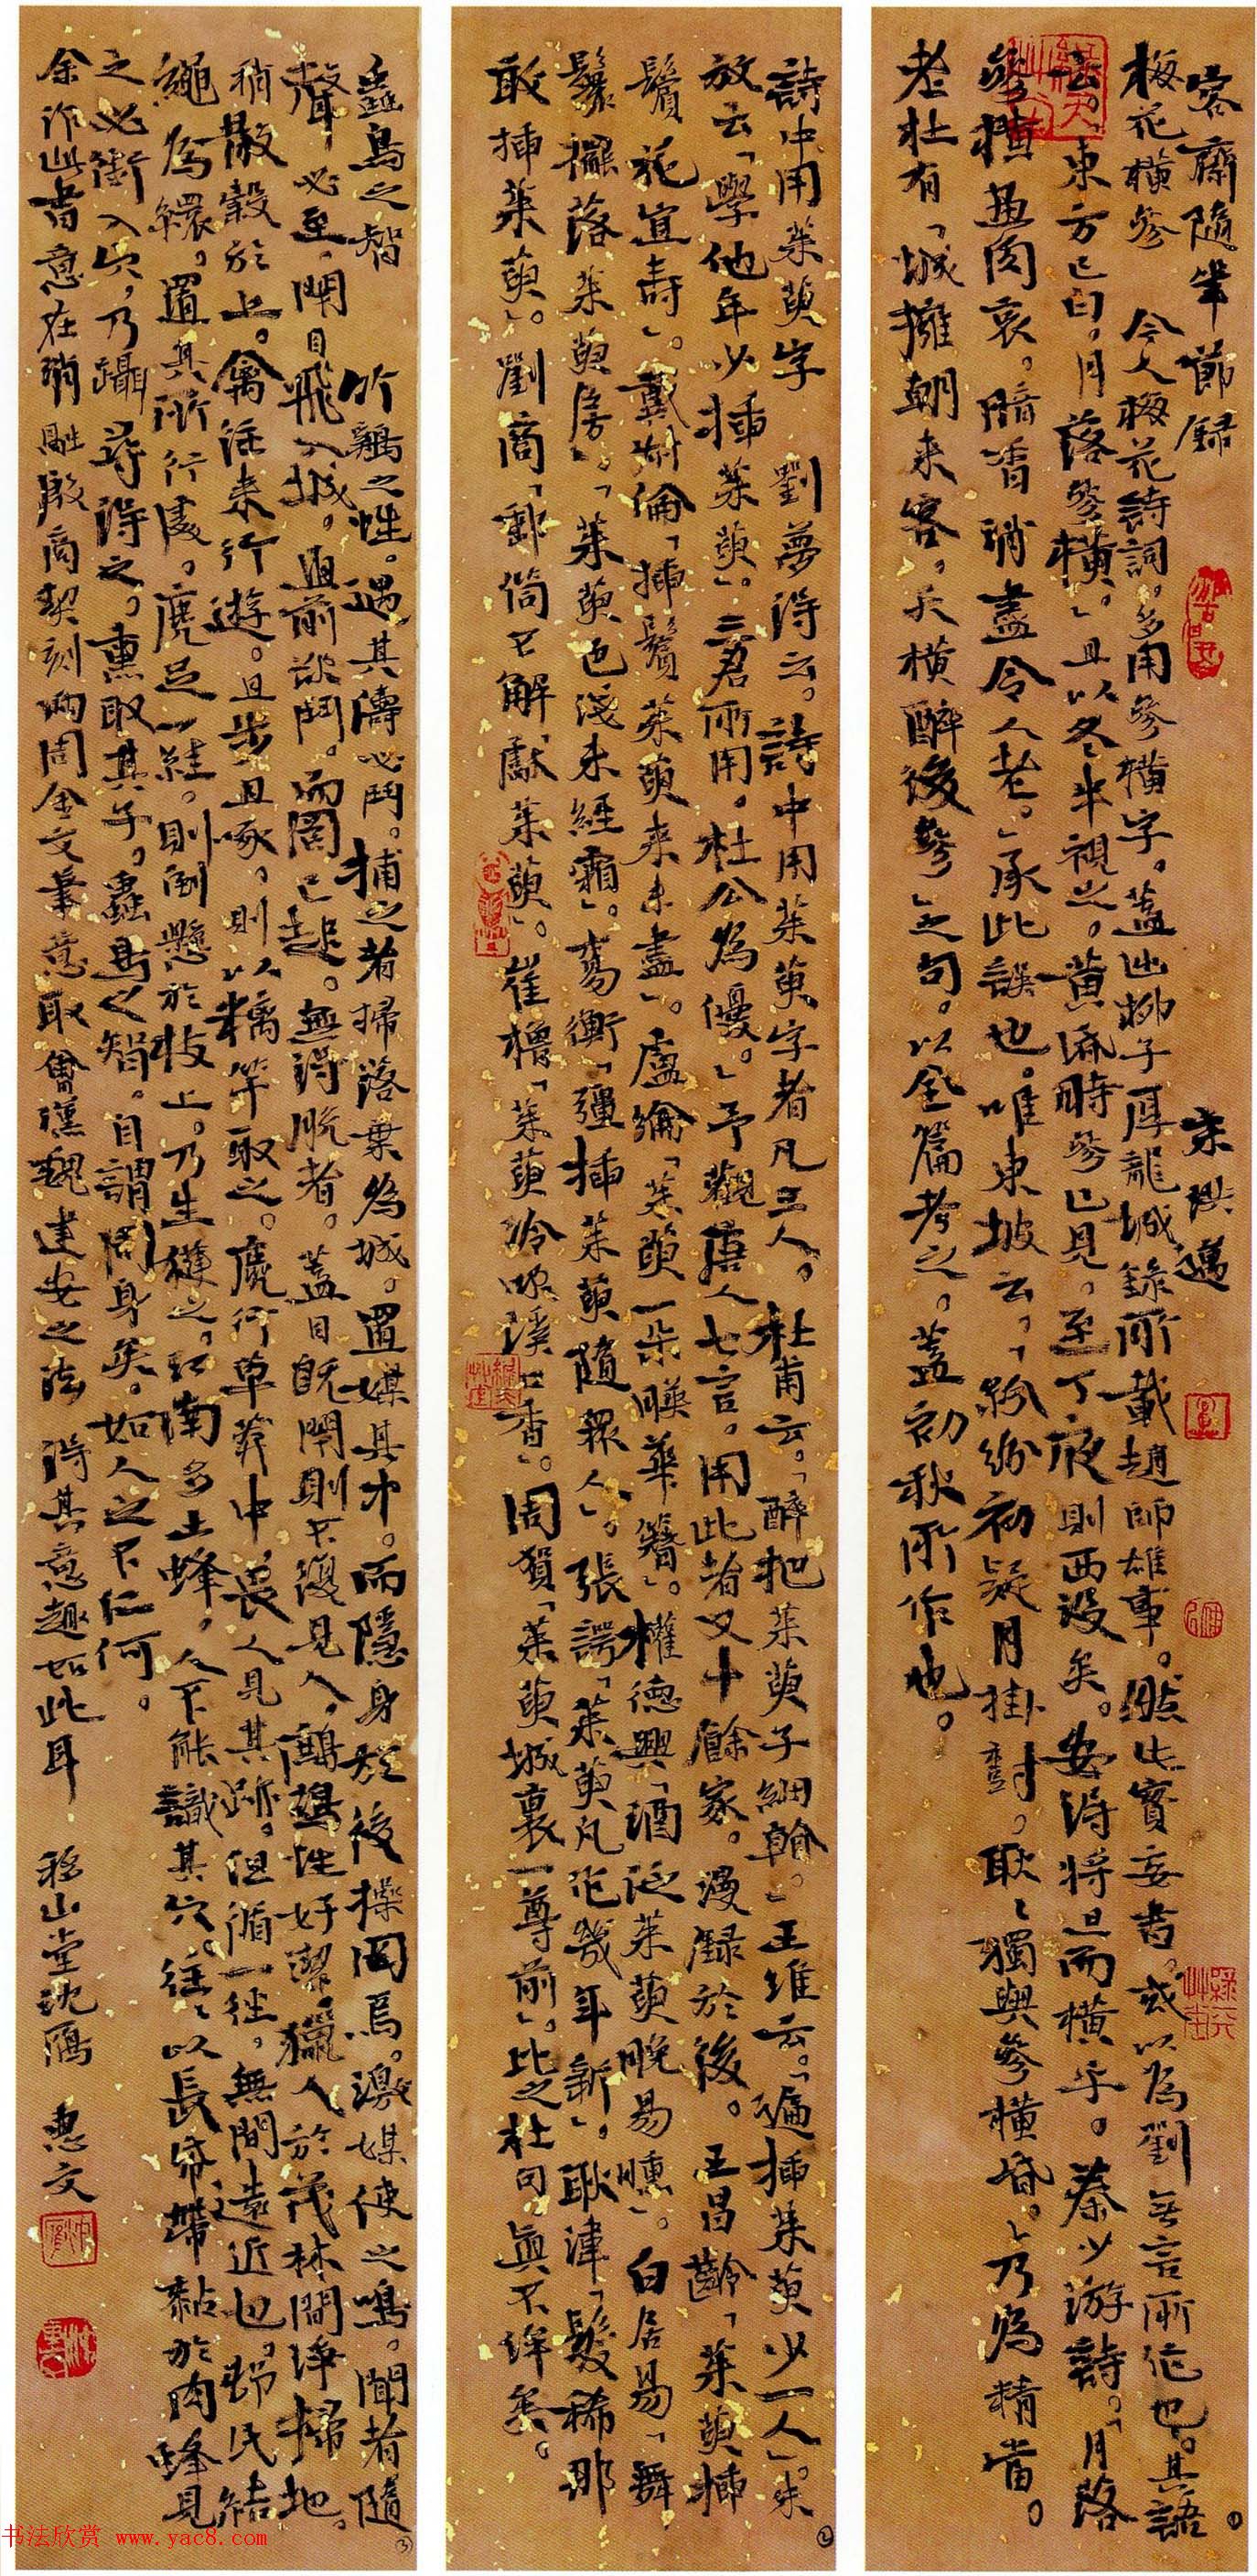 容齋隨筆節録 宋洪邁
梅花橫參 今人梅花詩詞。多用參橫字。蓋出柳子厚龍城錄所載趙師雄事。然此實妄書。或以為劉無言所作也。其語
云。東方已白。月落參橫。」且以冬半視之。黃昏時參已見。至丁夜則西沒矣。安得將旦而橫乎。秦少游詩。「月落
參橫畫角哀。暗香消盡令人老。」承此誤也。唯東坡云。「紛紛初疑月挂樹。耿耿獨與參橫昏。」乃為精當。
老杜有「城擁朝来客。天橫醉後參」之句。以全篇考之。蓋初秋所作也。
詩中用茱萸字 劉夢得云。詩中用茱萸字者凡三人。杜甫云。「醉把茱萸子細看。」王維云。「遍插茱萸少一人」。朱
放云「學他年少插茱萸」。三君所用。杜公為優。」予觀唐人七言。用此者又十餘家。漫録於後。王昌齡「茱萸插
鬢花宜壽」。戴叔倫「插鬢茱萸来未盡」。盧綸「茱萸一朵映華簪」。權德輿「酒泛茱萸晚易曛」。白居易「舞
鬟擺落茱萸房。「茱萸色淺未經霜」。楊衡「彊插茱萸隨衆人」。張諤「茱萸凡作幾年新」。耿湋「髮稀那
敢插茱萸」。劉商「郵筒不解獻茱萸」。崔櫓「茱萸冷吹溪口香」。周賀「茱萸城裏一尊前」。比之杜句。真不侔矣。
蟲鳥之智 竹鷄之性。遇其儔必鬥。捕之者掃落葉為城。置媒其中。而隱身於後操罔焉。激媒使之鳴。聞者隨
聲必至。閉目飛入城。直前欲鬥。而罔已起。無得脫者。蓋目既閉則不復見人。鷓鴣性好潔。獵人於茂林間淨掃地。
稍散穀於上。禽往来行遊。且步且啄。則以糯竿取之。麂行草莽中。畏人見其跡。但循一徑。無問遠近也。邨民結
繩為繯。置其所行處。麂足一絓。則倒懸於枝上。乃生獲之。江南多土蜂。人不能識其穴。往往以長帛帶黏於肉。蜂見
之必銜入穴，乃躡尋得之。熏取其子。蟲鳥之智。自謂周身矣。如人之不仁何。
余作此書意在消融殷商契刻兩周金文筆意取會漢魏建安之法 得其意趣如此耳 移山堂沈鴈 惠文
书法欣赏 www.yac8.com